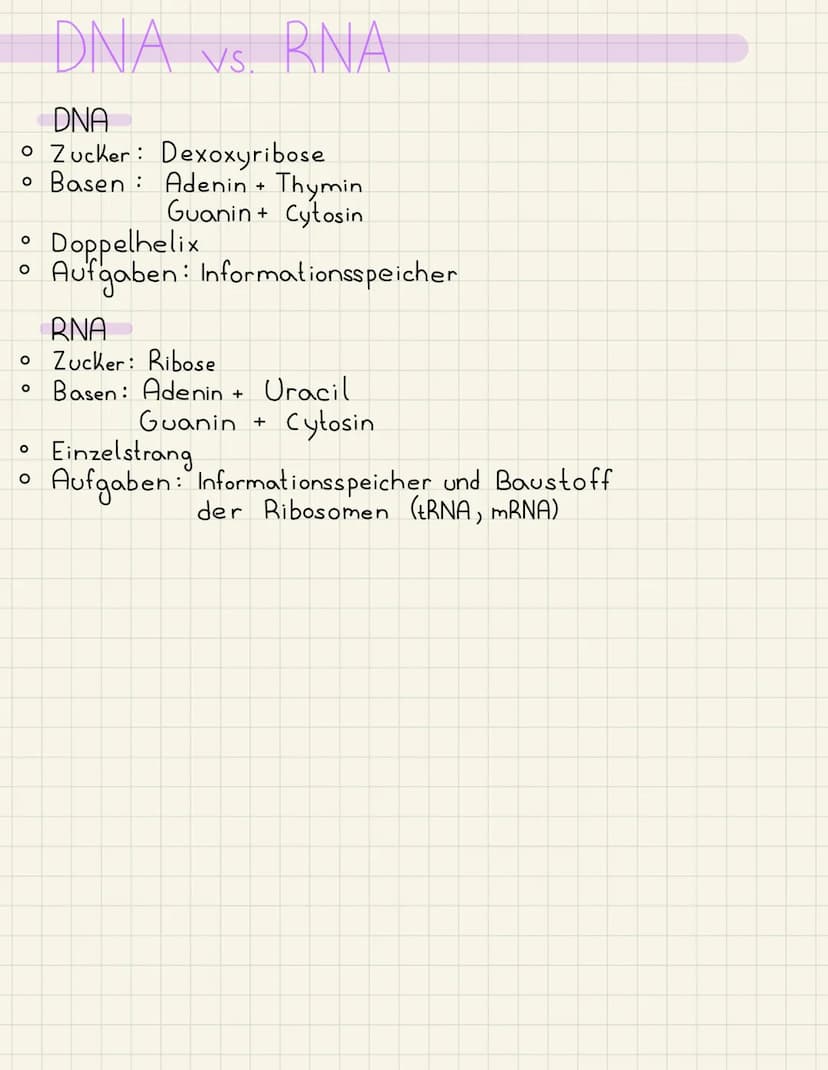 DNA vs. RNA
DNA
o Zucker: Dexoxyribose
o Basen: Adenin + Thymin
Guanin + Cytosin
o Doppelhelix
o Aufgaben: Informationsspeicher
RNA
o Zucker: Ribose
o Basen: Adenin + Uracil
Guanin + Cytosin
o Einzelstrang
o Aufgaben: Informationsspeicher und Baustoff
der Ribosomen (tRNA, mRNA)